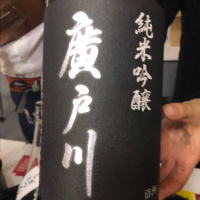 純米吟醸
廣戸川